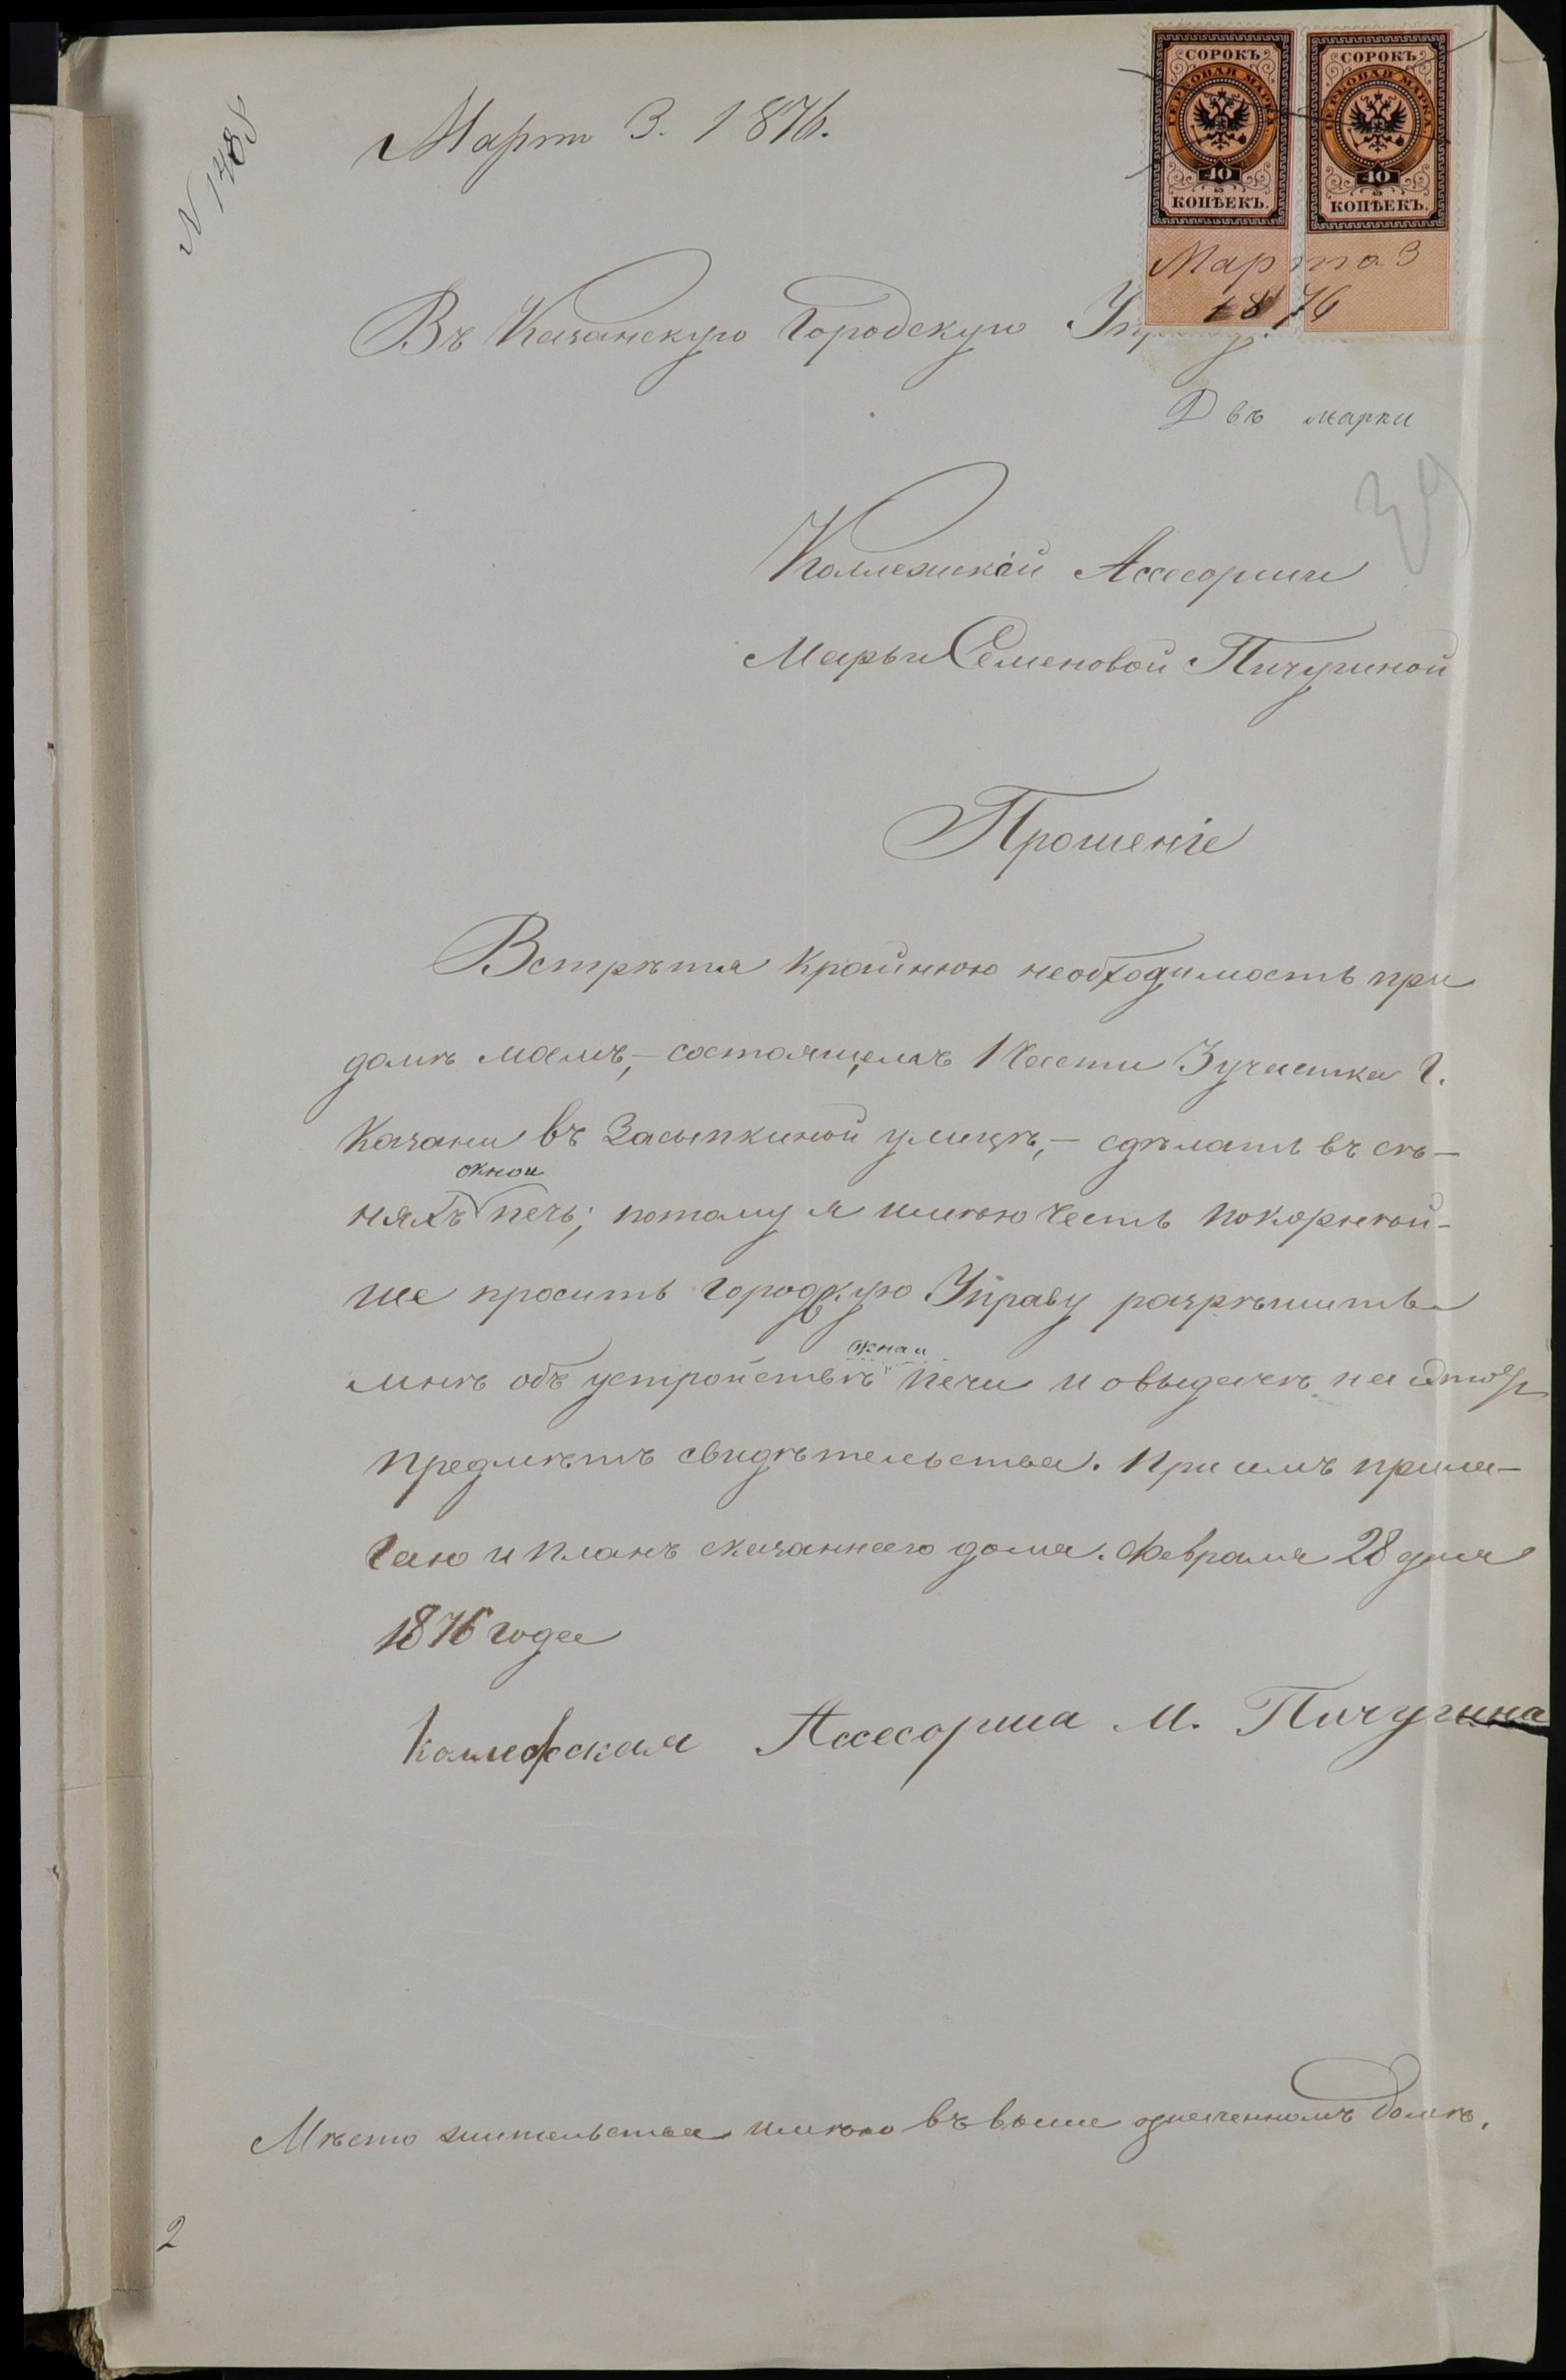 N 1485
Март 3. 1876.
СОРОКЪ
ГЕРБОВАЯ МАРКА
40
КОПѢЕКЪ.
СОРОКЪ
ГЕРБОВАЯ МАРКА
40
КОПѢЕКЪ.
Марта 3
1876
Въ Казанскую Городскую
Двѣ марки
39
Коллежской Ассесорши
Марьи Семеновой Пичугиной
Прошеніе
Встрѣтя крайнюю необходимость при
домѣ моемъ, – состоящемъ 1 Части 3 участка г.
Казани въ Засыпкиной улицѣ, – сдѣлать въ сѣ–
няхъ печь; потому я имѣю честь покорнѣй–
ше просить Городскую Управу разрѣшить
мнѣ объ устройствѣ печи и о выдачѣ на этотъ
предмѣтъ свидѣтельства. При имъ прила–
гаю и планъ сказаннаго дома. Февраля 28 дня
1876 года
Коллежская Ассесорша М. Пичугина
Мѣсто жительства имѣю въ выше означенномъ домѣ.
2